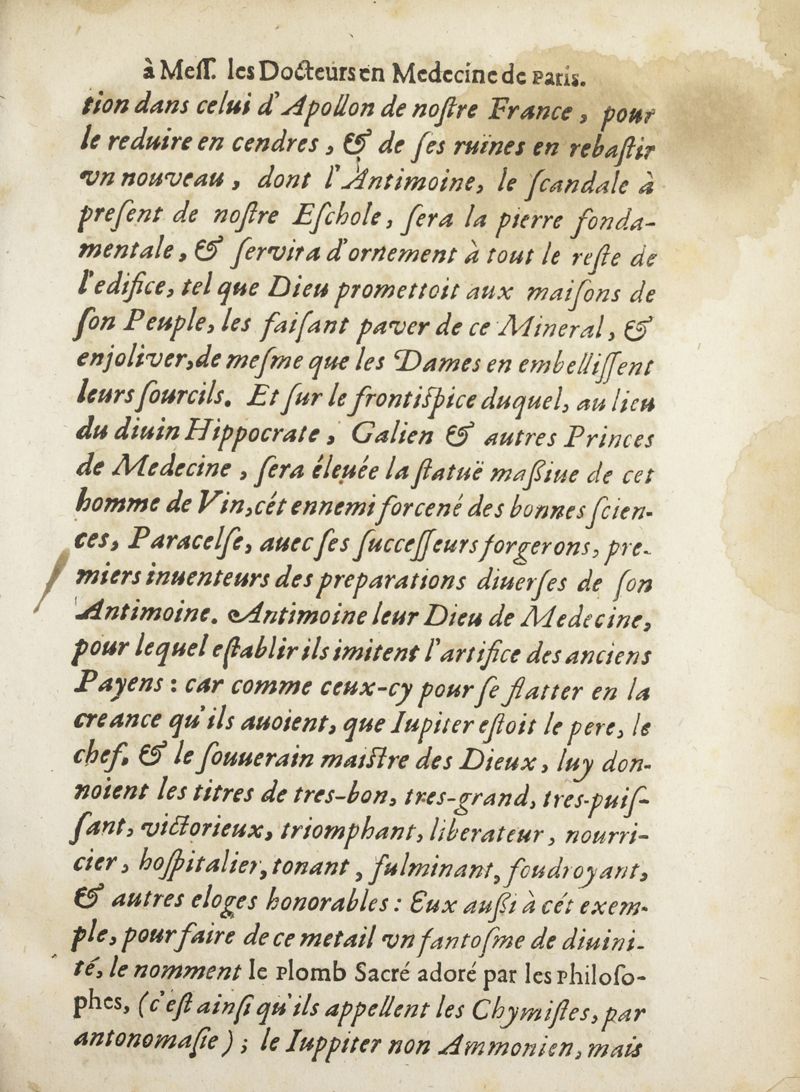 à Meſſ. les Docteurs en Medecine de Paris.
tion dans celui d'Apollon de noſtre France, pour
le reduire en cendres, & de ſes ruïnes en rebaſtir
vn nouveau, dont l'Antimoine, le ſcandale à
preſent de noſtre Eſchole, ſera la pierre fonda-
mentale, & ſervira d'ornement à tout le reſte de
l'edifice, tel que Dieu promettoit aux maiſons de
ſon Peuple, les faiſant paver de ce Mineral, &
enjoliver, de meſme que les Dames en embelliſſent
leurs ſourcils. Et ſur le frontiſpice duquel, au lieu
du diuin Hippocrate, Galien & autres Princes
de Medecine, ſera éleuée la ſtatuë maſſiue de cet
homme de Vin, cét ennemi forcené des bonnes ſcien-
ces, Paracelſe, auec ſes ſucceſſeurs forgerons, pre-
miers inuenteurs des preparations diuerſes de ſon
Antimoine. Antimoine leur Dieu de Medecine,
pour lequel eſtablir ils imitent l'artifice des anciens
Payens : car comme ceux-cy pour ſe flatter en la
creance qu'ils auoient, que Iupiter eſtoit le pere, le
chef, & le ſouuerain maiſtre des Dieux, luy don-
noient les titres de tres-bon, tres-grand, tres-puiſ-
ſant, victorieux, triomphant, liberateur, nourri-
cier, hoſpitalier, tonant, fulminant, foudroyant,
& autres eloges honorables : Eux auſſi à cét exem-
ple, pour faire de ce metail vn fantoſme de diuini-
té, le nomment le Plomb Sacré adoré par les Philoſo-
phes, (c'eſt ainſi qu'ils appellent les Chymiſtes, par
antonomaſie) ; le Iuppiter non Ammonien, mais